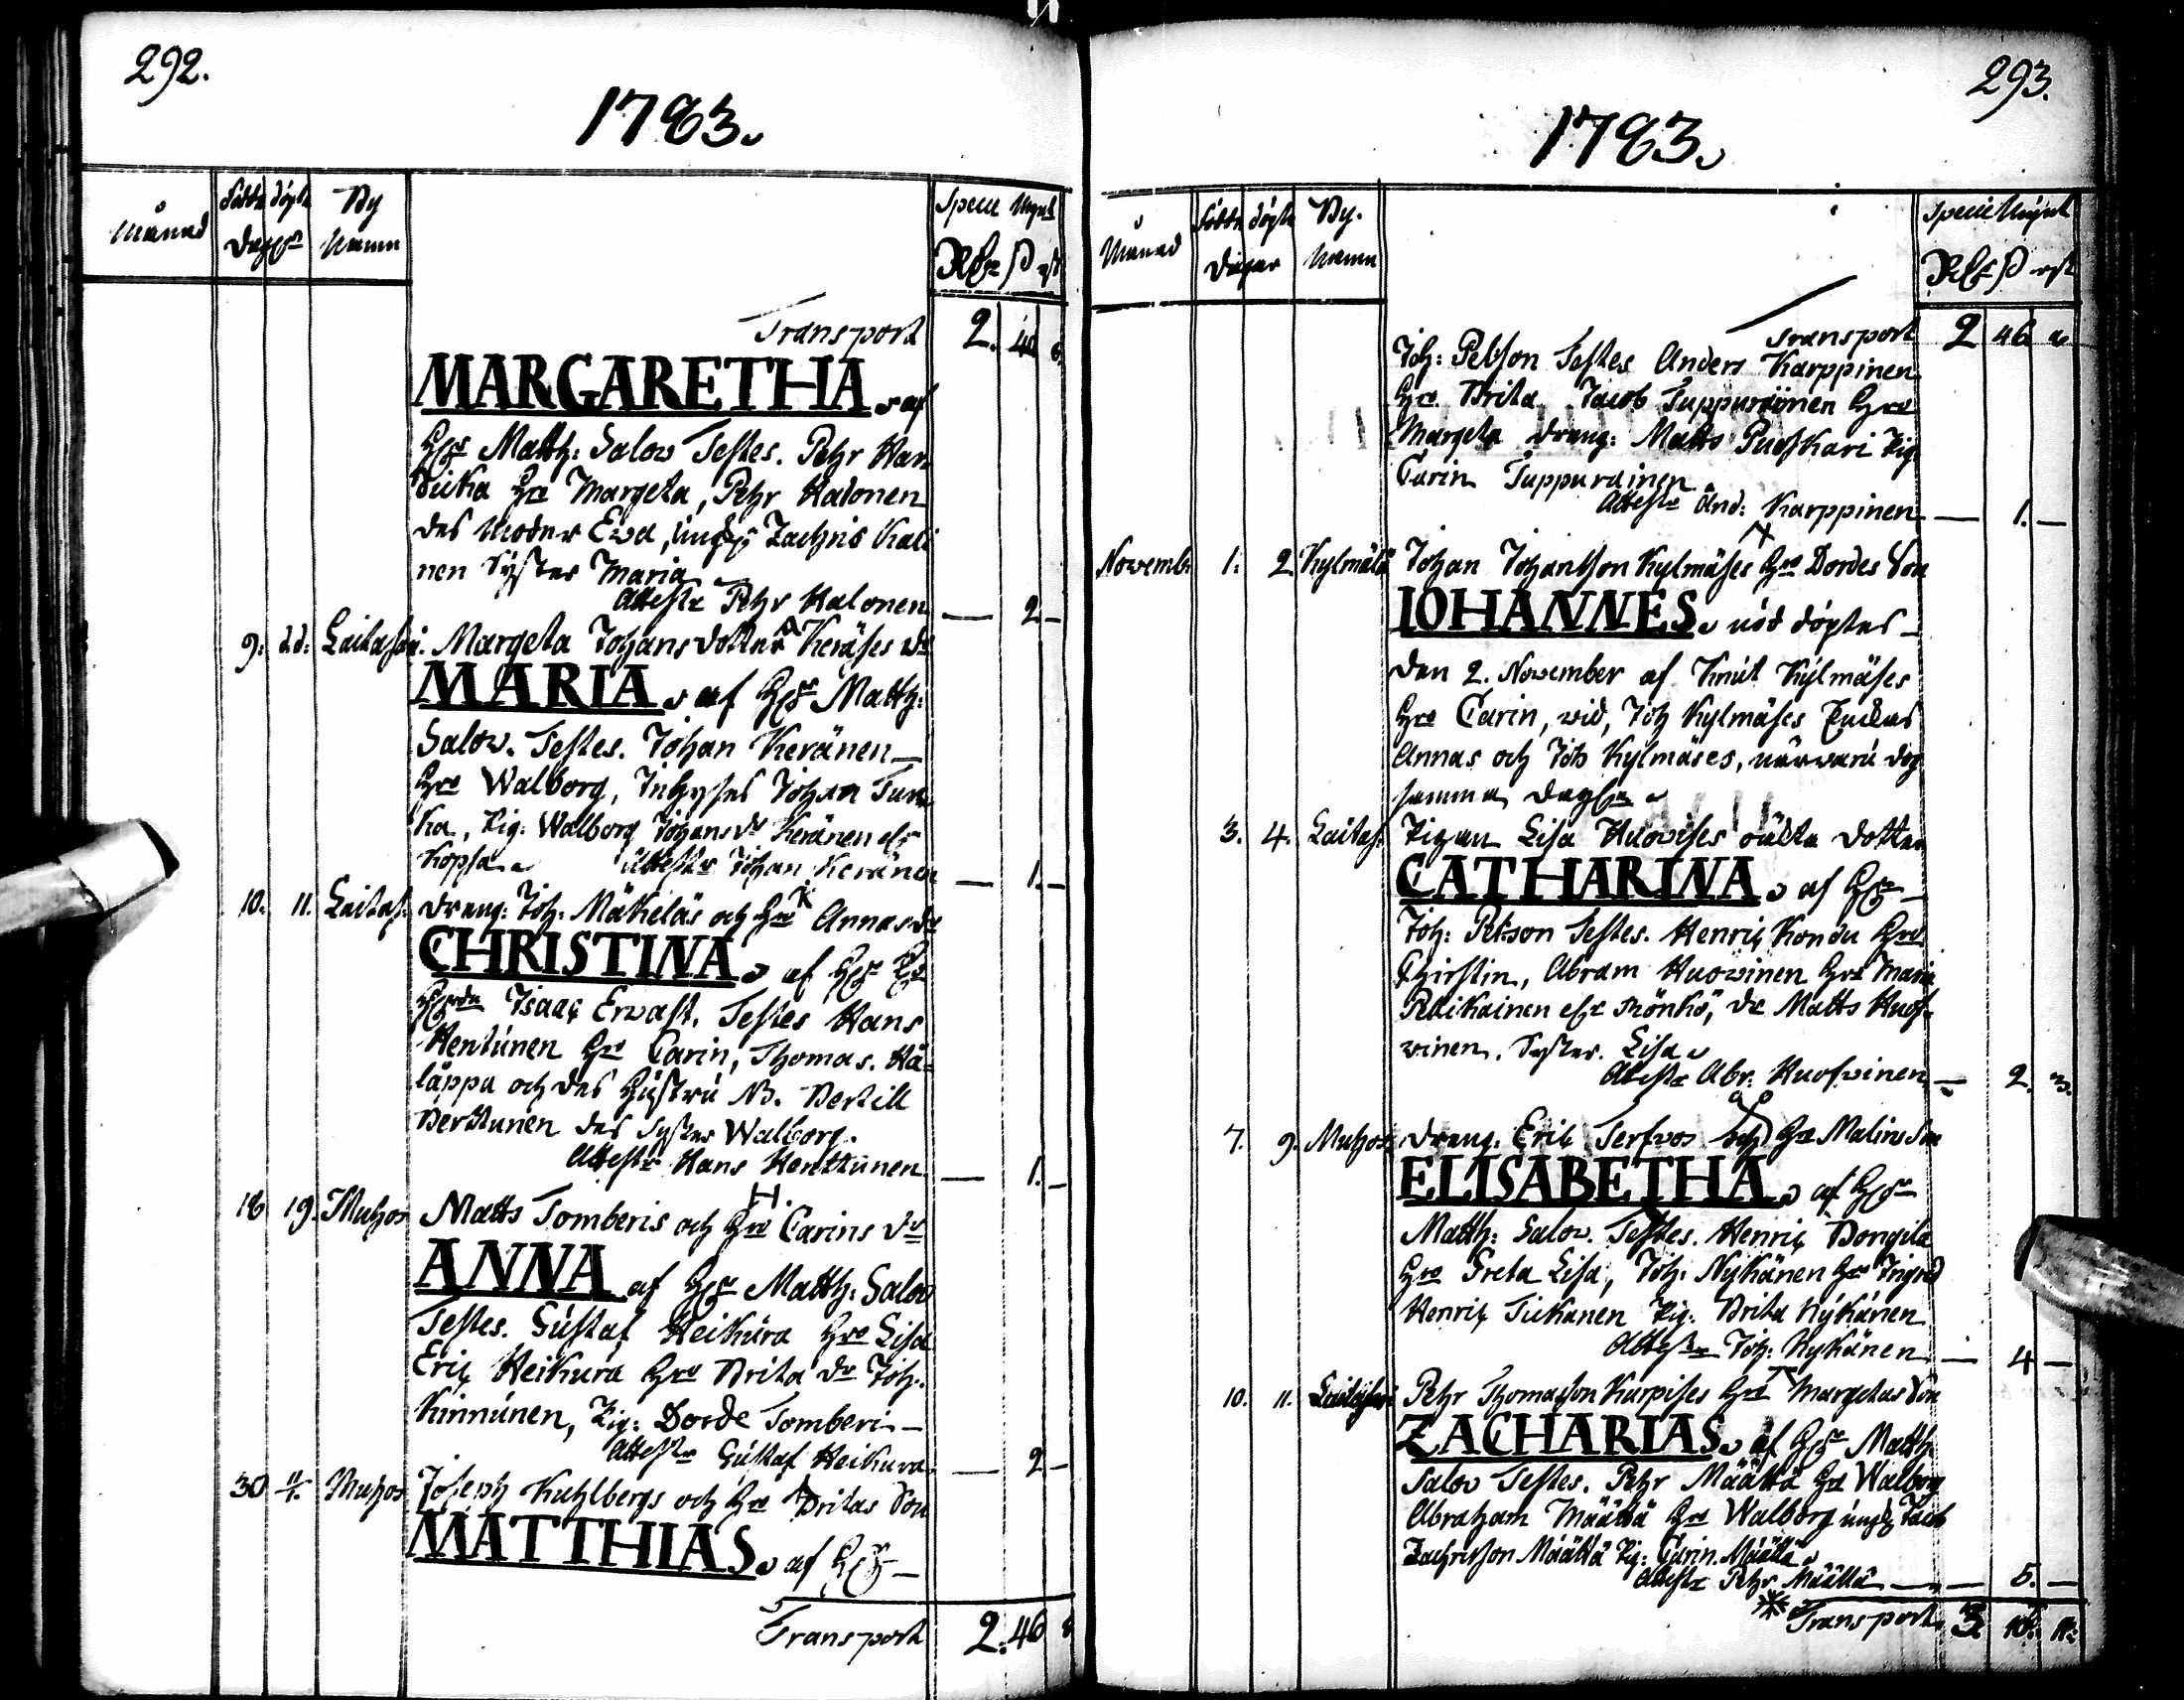 292.
1783.
Månad
Födde
Döpte
Dagar
By
Namn
Specie Mynt
Rdr ß rst
Transport 2. 40 8.
MARGARETHA af
Hr Matth: Salov Testes. Pehr Har-
Hro Margeta, Pehr Halonen
des Moder Ewa, Zachris Kali
nen Syster Maria
Attestr Pehr Halonen — 2 —
9: d.d: Laitasari. Margeta Johans dotter Keräses dr
MARIA af Hr Matth:
Salov. Testes. Johan Keränen
Hro Walborg, Inhyses Johan
Pig: Walborg Johans dr Keränen elr
Kopsa. Attestr Johan Keränen — 1. —
10. 11. Laitas: Dräng: Joh: Mäkeläs och Hro Annas dr
CHRISTINA af Hr
Isaac Erwast. Testes Hans
Henttunen Hro Carin, Thomas. Hä-
läppa och des Hustru NB. Bertill
Berttunen des Syster Walborg.
Attestr Hans Henttunen — 1. —
18 19. Muhos Matts Tomberis och Hro Carins dr
ANNA af Hr Matth: Salov
Testes. Gustaf Heikura Hro Lisa
Eric Heikura Hro Brita Dr Joh:
Kinnunen, Pig: Dorde Tomberi
Attestr Gustaf Heikura — 2 —
30 Muhos Joseph Kuhlbergs och Hro Britas Son
MATTHIAS af Hr
Transport 2. 46 8
293.
1783.
Månad
Födde
Döpte
Dagar
By.
Namn
Specie Mynt
Rdr ß rst
Transport 2 46 8
Joh: Petson Testes Anders Karppinen
Hro Brita Jacob Tuppurainen Hro
Margeta dräng: Matts Pig
Carin Tuppurainen
Attestr And: Karppinen — 1. —
Novemb: 1. 2 Kylmälä Johan Johansson Kylmäses Hro Dordes Son
IOHANNES nöd döptes
den 2. November af Knut Kylmäses
Hro Carin, wid, Joh Kylmäses Enckas
Annas och Joh Kylmäses, närwaru dog
samma dagen
3. 4. Laitas: Pigan Lisa Huowises oäkta dotter
CATHARINA af Hr
Joh: Petson Testes. Henric Kondu Hro
Chirstin, Abram Huowinen Hro Maria
Pelikainen elr Mönkö, Dr Matts Huof-
winen. Syster. Lisa
Attestr Abr. Huofwinen — 2.
7. 9. Muhos Dräng. Eric Terfvos och Hro Malins
ELISABETHA af Hr
Matth: Salov. Testes. Henric Bongila
Hro Greta Lisa, Joh: Nykänen Hro Ingrid
Henric Tiikanen Pig: Brita Nykänen
Attestr Joh: Nykänen — 4 —
10. 11. Laitasari Pehr Thomasson Karpises Hro Margetas Son
ZACHARIAS af Hr Matth
Salov Testes. Pehr Määttä Hro Walborg
Abraham Määttä Hro Walborg Jacob
Zachrisson Määttä Pig: Carin Määttä
Attestr Pehr Määttä — 5. —
Transport 3. 10.